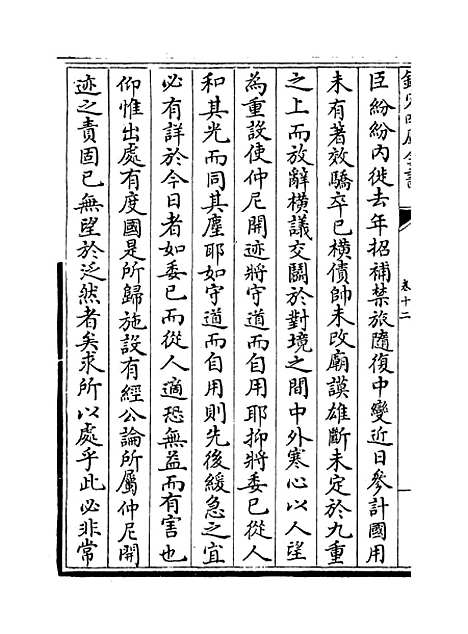 欽定四庫全書
卷十二
臣紛紛內徙去年招補禁旅隨復中變近日參計國用
未有著效驕卒已橫債帥未改廟謨雄斷未定於九重
之上而放辭橫議交闘於對境之間中外寒心以人望
為重設使仲尼開迹將守道而自用耶抑將委已從人
和其光而同其塵耶如守道而自用則先後緩急之宜
必有詳於今日者如委已而從人適恐無益而有害也
仰惟出處有度國是所歸施設有經公論所屬仲尼開
迹之責固已無望於泛然者矣求所以處乎此必非常